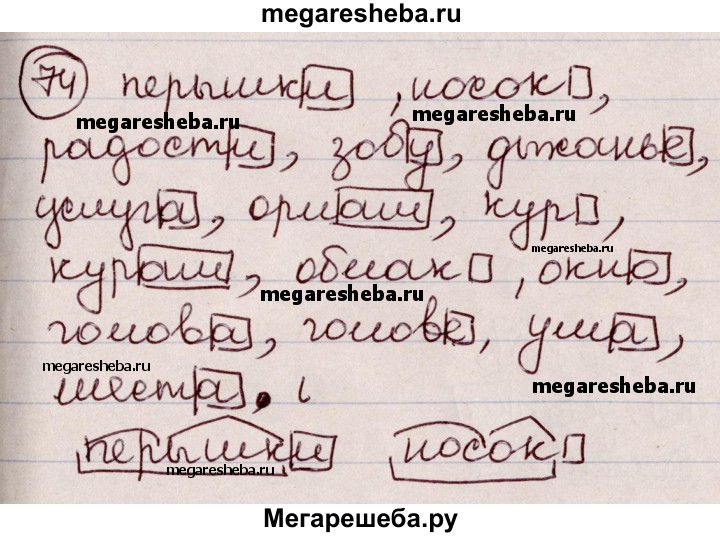 megaresheba.ru
74 перышки, носок,
megaresheba.ru megaresheba.ru
радости, зобу, дыханье,
услуга, орлам, кур,
megaresheba.ru
курам, облак, окно,
megaresheba.ru
голова, голове, ума,
megaresheba.ru
места.
megaresheba.ru
перышки носок
megaresheba.ru
Мегарешеба.ру